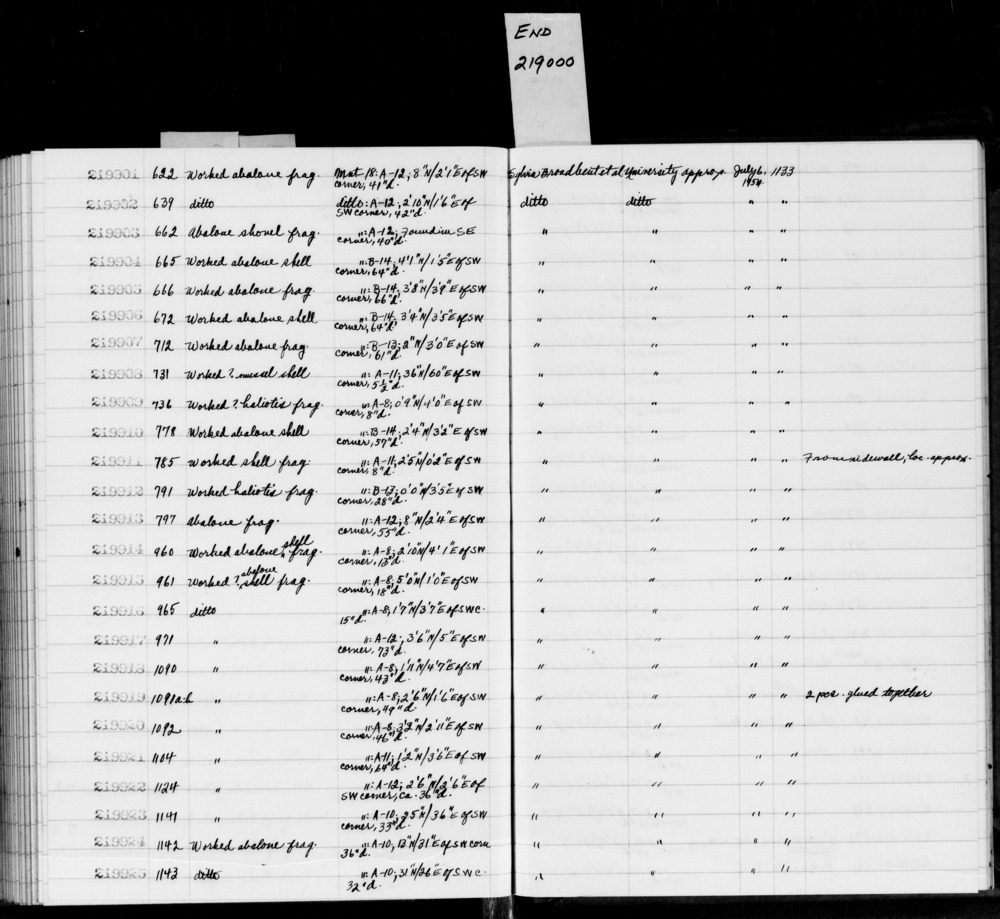 END
219000
219901 622 Worked abalone frag. Mnt 18: A-12; 8"N/2'1"E of SW Sylvia Broadbent et al University approp. July 6, 1133
corner, 41"d. 1954
219902 639 ditto ditto: A-12; 2'10"N/1'6"E of ditto ditto " "
SW corner, 42"d.
219903 662 Abalone shovel frag. ": A-12; Found in SE " " " "
corner, 40"d.
219904 665 Worked abalone shell ": B-14; 4'1"N/1'5"E of SW " " " "
corner, 64"d.
219905 666 Worked abalone frag. ": B-14; 3'8"N/3'9"E of SW " " " "
corner, 66"d.
219906 672 Worked abalone shell ": B-14; 3'4"N/3'5"E of SW " " " "
corner, 64"d.
219907 712 Worked abalone frag. ": B-13; 2"N/3'0"E of SW " " " "
corner, 61"d.
219908 731 Worked? mussel shell ": A-11; 36"N/60"E of SW " " " "
corner, 5½"d.
219909 736 Worked? haliotis frag. ": A-8; 0'9"N/4'0"E of SW " " " "
corner, 8"d.
219910 778 Worked abalone shell ": B-14; 2'4"N/3'2"E of SW " " " "
corner, 57"d.
219911 785 Worked shell frag. ": A-11; 2'5"N/0'2"E of SW " " " " From sidewall, loc. approx.
corner, 8"d.
219912 791 Worked haliotis frag. ": B-13; 0'0"N/3'5"E of SW " " " "
corner, 28"d.
219913 797 Abalone frag. ": A-12; 8"N/2'4"E of SW " " " "
corner, 55"d.
219914 960 Worked abalone shell frag. ": A-8; 2'10"N/4'1"E of SW " " " "
corner, 13"d.
219915 961 Worked? abalone shell frag. ": A-8; 5'0"N/1'0"E of SW " " " "
corner, 18"d.
219916 965 ditto ": A-8; 1'7"N/3'7"E of SW c. " " " "
15"d.
219917 971 " ": A-12; 3'6"N/5"E of SW " " " "
corner, 73"d.
219918 1090 " ": A-8; 1'11"N/4'7"E of SW " " " "
corner, 43"d.
219919 1091a-b " ": A-8; 2'6"N/1'6"E of SW " " " " 2 pcs. glued together
corner, 49"d.
219920 1092 " ": A-8; 3'3"N/2'11"E of SW " " " "
corner, 46"d.
219921 1104 " ": A-11; 1'2"N/3'6"E of SW " " " "
corner, 64"d.
219922 1124 " ": A-12; 2'6"N/2'6"E of " " " "
SW corner, ca. 36"d.
219923 1141 " ": A-10; 25"N/36"E of SW " " " "
corner, 33"d.
219924 1142 Worked abalone frag. ": A-10; 13"N/31"E of SW corn " " " "
36"d.
219925 1143 ditto ": A-10; 31"N/26"E of SW c. " " " "
32"d.